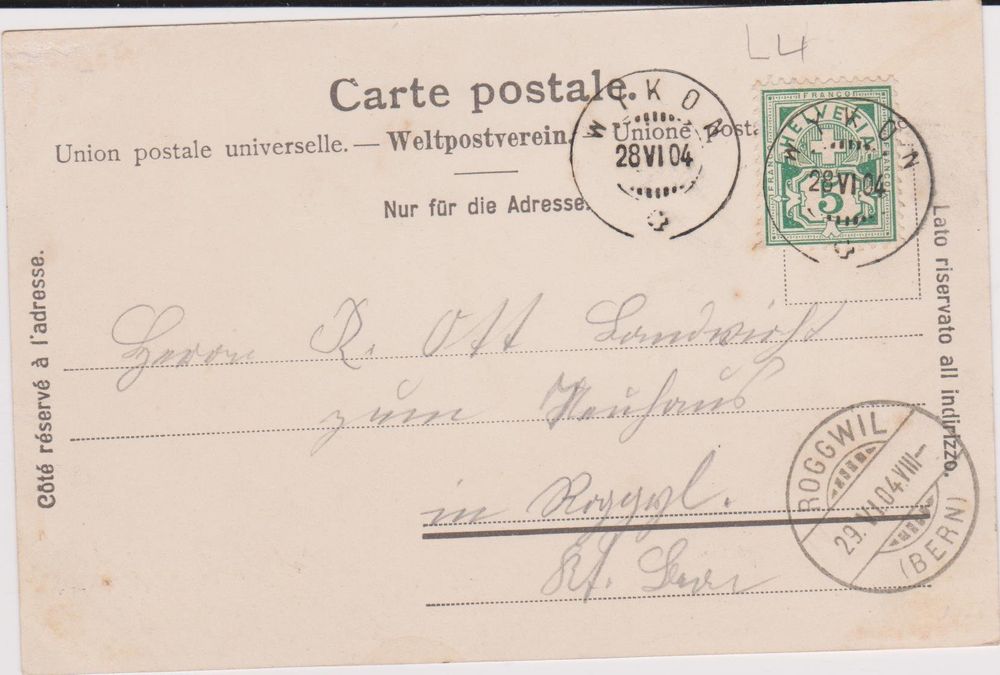 L4
Carte postale.
Union postale universelle. — Weltpostverein. Unione posta
Nur für die Adresse.
WIKON
28 VI 04
FRANCO
HELVETIA
FRANCO
FRANCO
5
WIKON
28 VI 04
Côté réservé à l'adresse.
Lato riservato all indirizzo.
Herrn R. Ott Landwirth
zum Neuhaus
in Roggwyl.
Kt. Bern
ROGGWIL
29.VI.04.VIII—
(BERN)